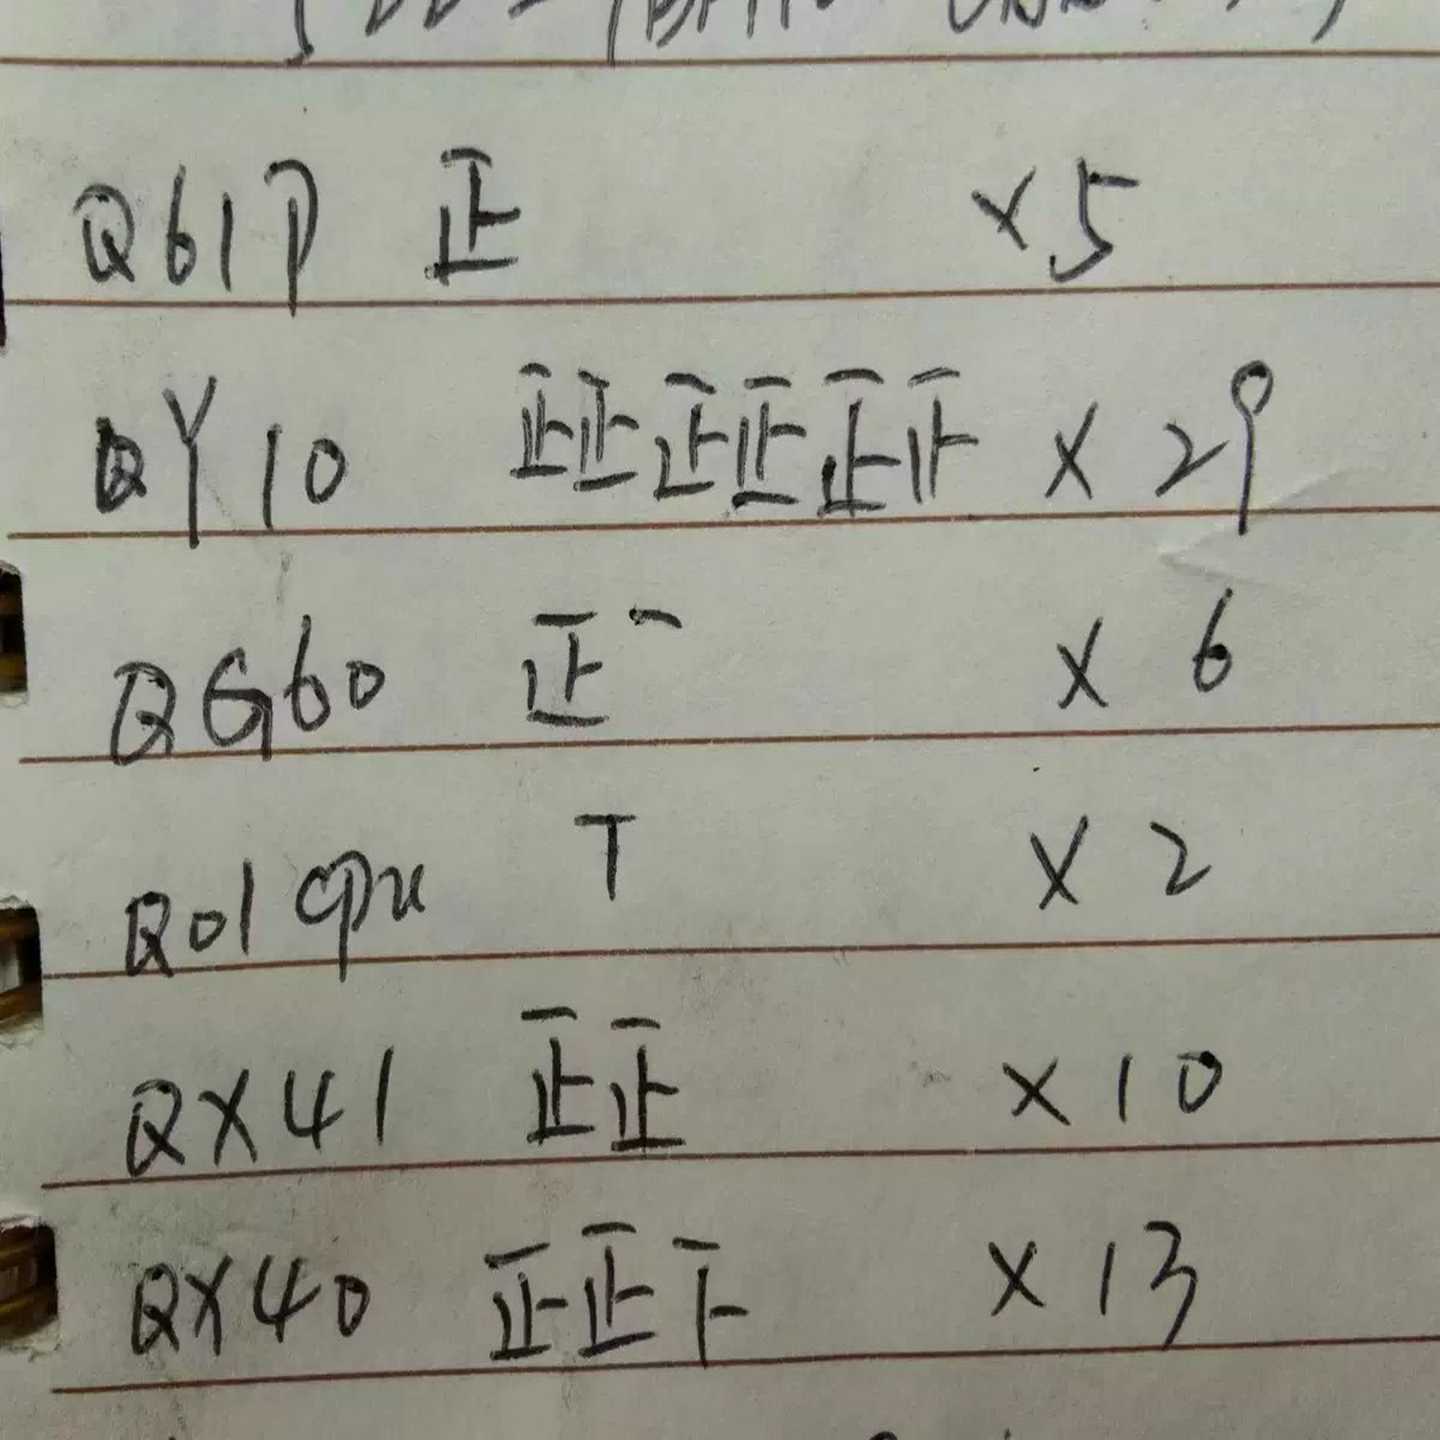 Q61P 正 ×5
QY10 正正正正正𤴓 × 29
QG60 正一 × 6
Q01cpu T × 2
QX41 正正 ×10
QX40 正正下 ×13